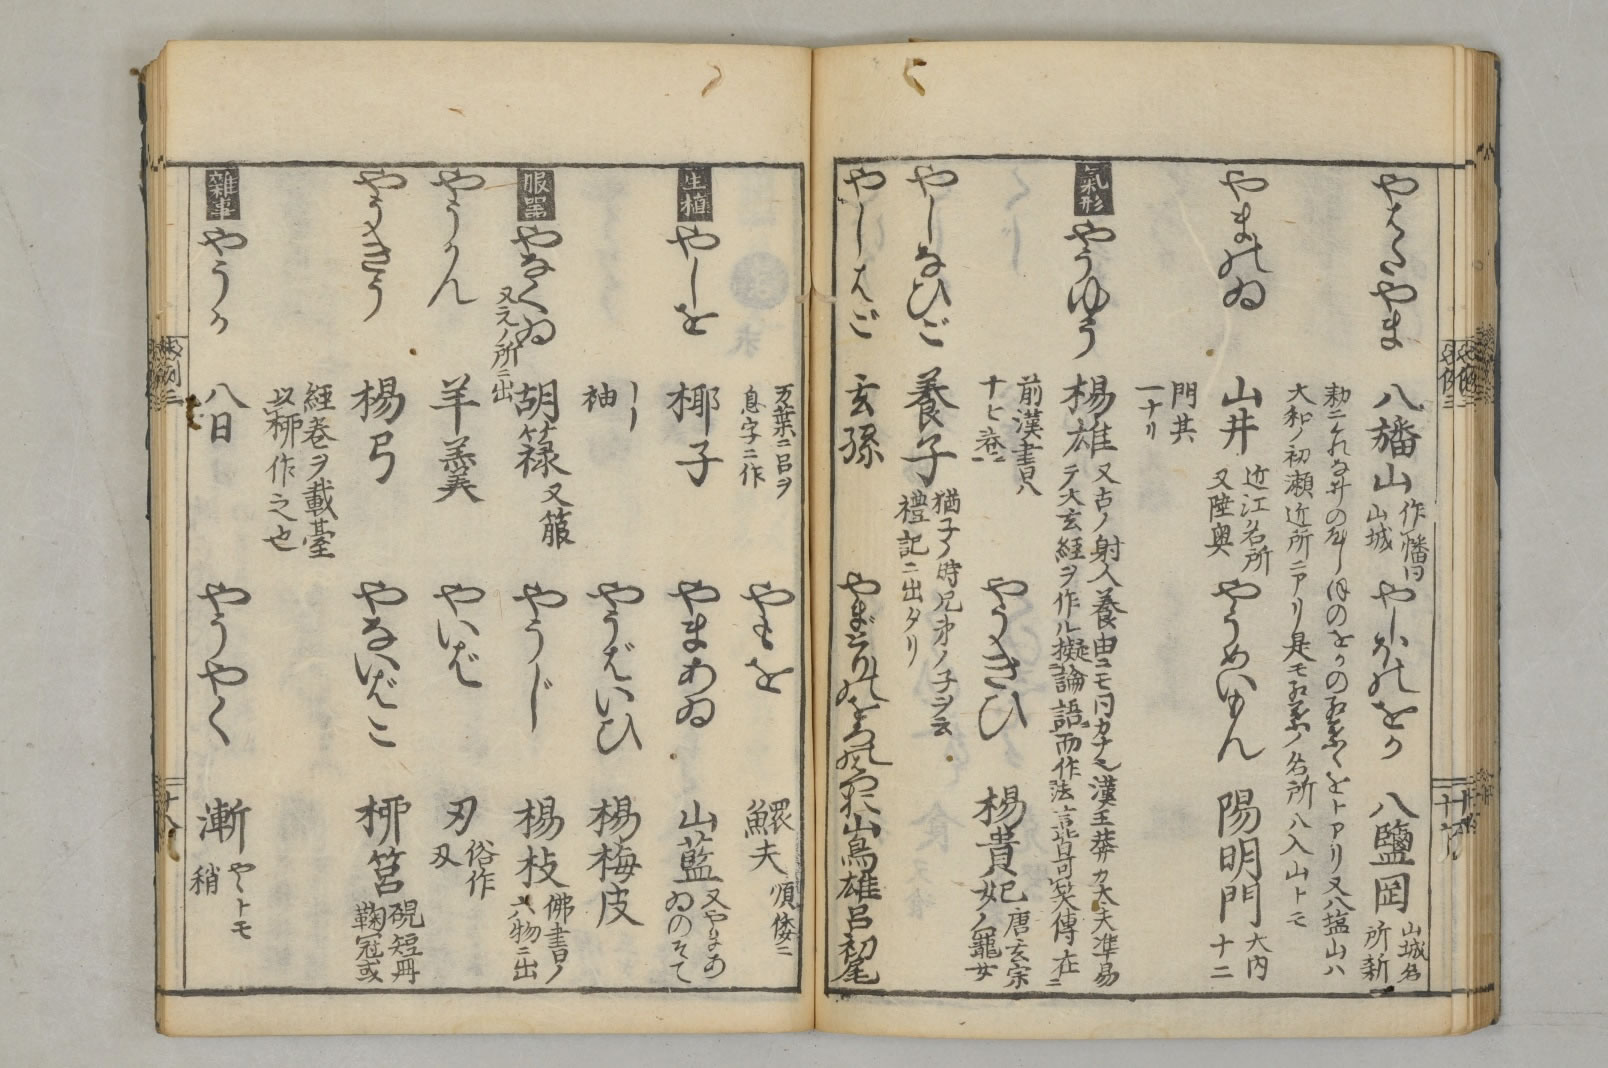 やはたやま 八旛山 作幡同 山城
やしほのをか 八鹽岡 山城名所新
勅ニくれなゐのやしほのをかの紅葉〻をトアリ又八塩山ハ
大和ノ初瀬近所ニアリ是モ紅葉ノ名所八入山トモ
やまのゐ 山井 近江名所 又陸奥
やうめいもん 陽明門 大内十二
門其一ナリ
氣形
やうゆう 楊雄 又古ノ射人養由ニモ同カナ也漢王莽カ大夫準易
テ大玄経ヲ作ル擬論語而作法言皆奇矣傳在ニ
前漢書八十七巻ニ
やうきひ 楊貴妃 唐玄宗妃ノ寵女
やしなひご 養子 猶子ノ時兄弟ノ子ヲ云 禮記ニ出タリ
やしはご 玄孫
やまどりのをろのはつを 山鳥雄呂初尾
万葉ニ呂ヲ息字ニ作
やもを 鰥夫 順倭ニ
生植
やしを 椰子
やまあゐ 山藍 又やまあゐのそて
袖
やうばいひ 楊梅皮
服器
やなぐゐ 胡簶 又箙
又えノ所ニ出
やうじ 楊枝 佛書ノ六物ニ出
やうかん 羊羹
やいば 刃 俗作刄
やうきう 楊弓
やないばこ 柳筥 硯短冊鞠冠或
経巻ヲ載臺以柳作之也
雑事
やうか 八日
やうやく 漸 やヽトモ 稍